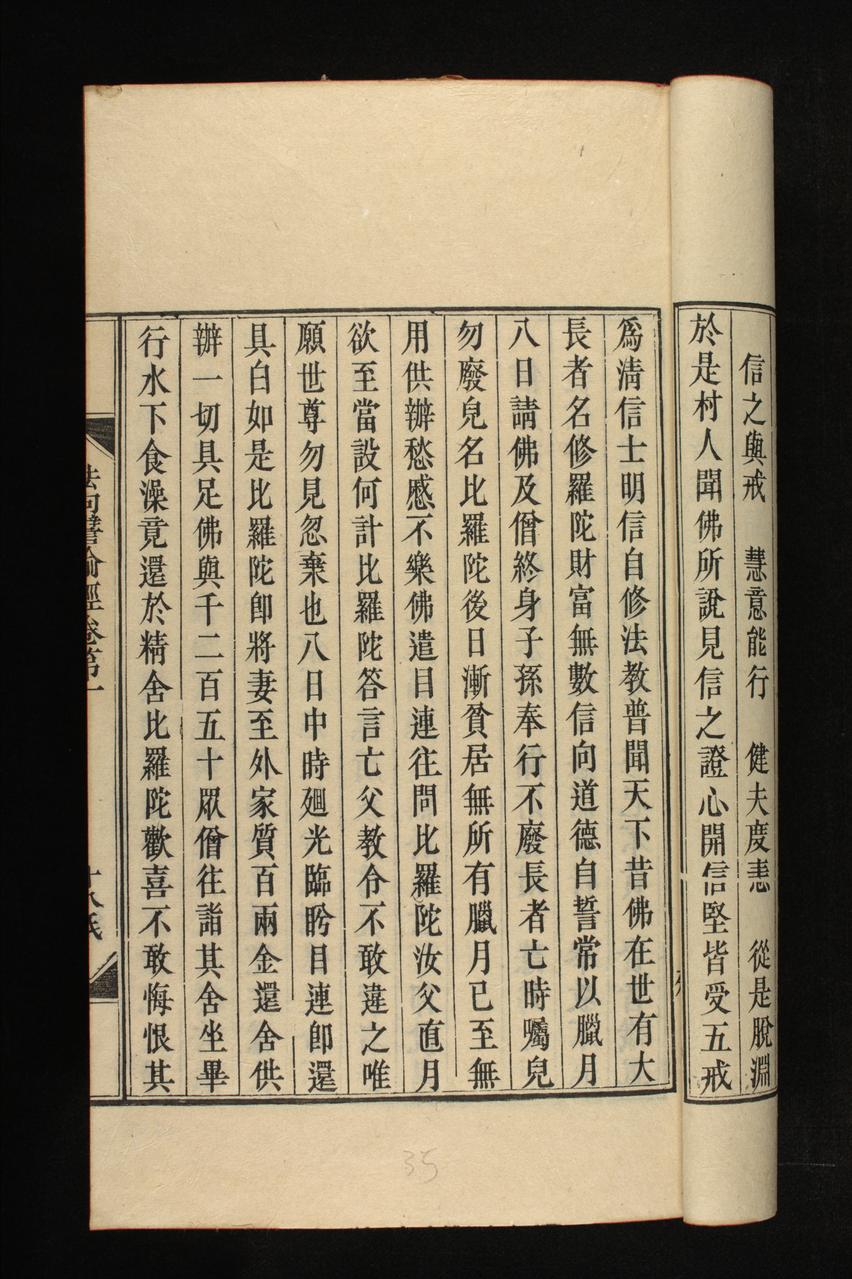 信之與戒　慧意能行　健夫度恚　從是脫淵
於是村人聞佛所說見信之證心開信堅皆受五戒
爲清信士明信自修法教普聞天下昔佛在世有大
長者名修羅陀財富無數信向道德自誓常以臘月
八日請佛及僧終身子孫奉行不廢長者亡時囑兒
勿廢兒名比羅陀後日漸貧居無所有臘月已至無
用供辦愁慼不樂佛遣目連往問比羅陀汝父直月
欲至當設何計比羅陀答言亡父教令不敢違之唯
願世尊勿見忽棄也八日中時廻光臨眄目連卽還
具白如是比羅陀卽將妻至外家質百兩金還舍供
辦一切具足佛與千二百五十眾僧往詣其舍坐畢
行水下食澡竟還於精舍比羅陀歡喜不敢悔恨其
法句譬喻經卷第一
35